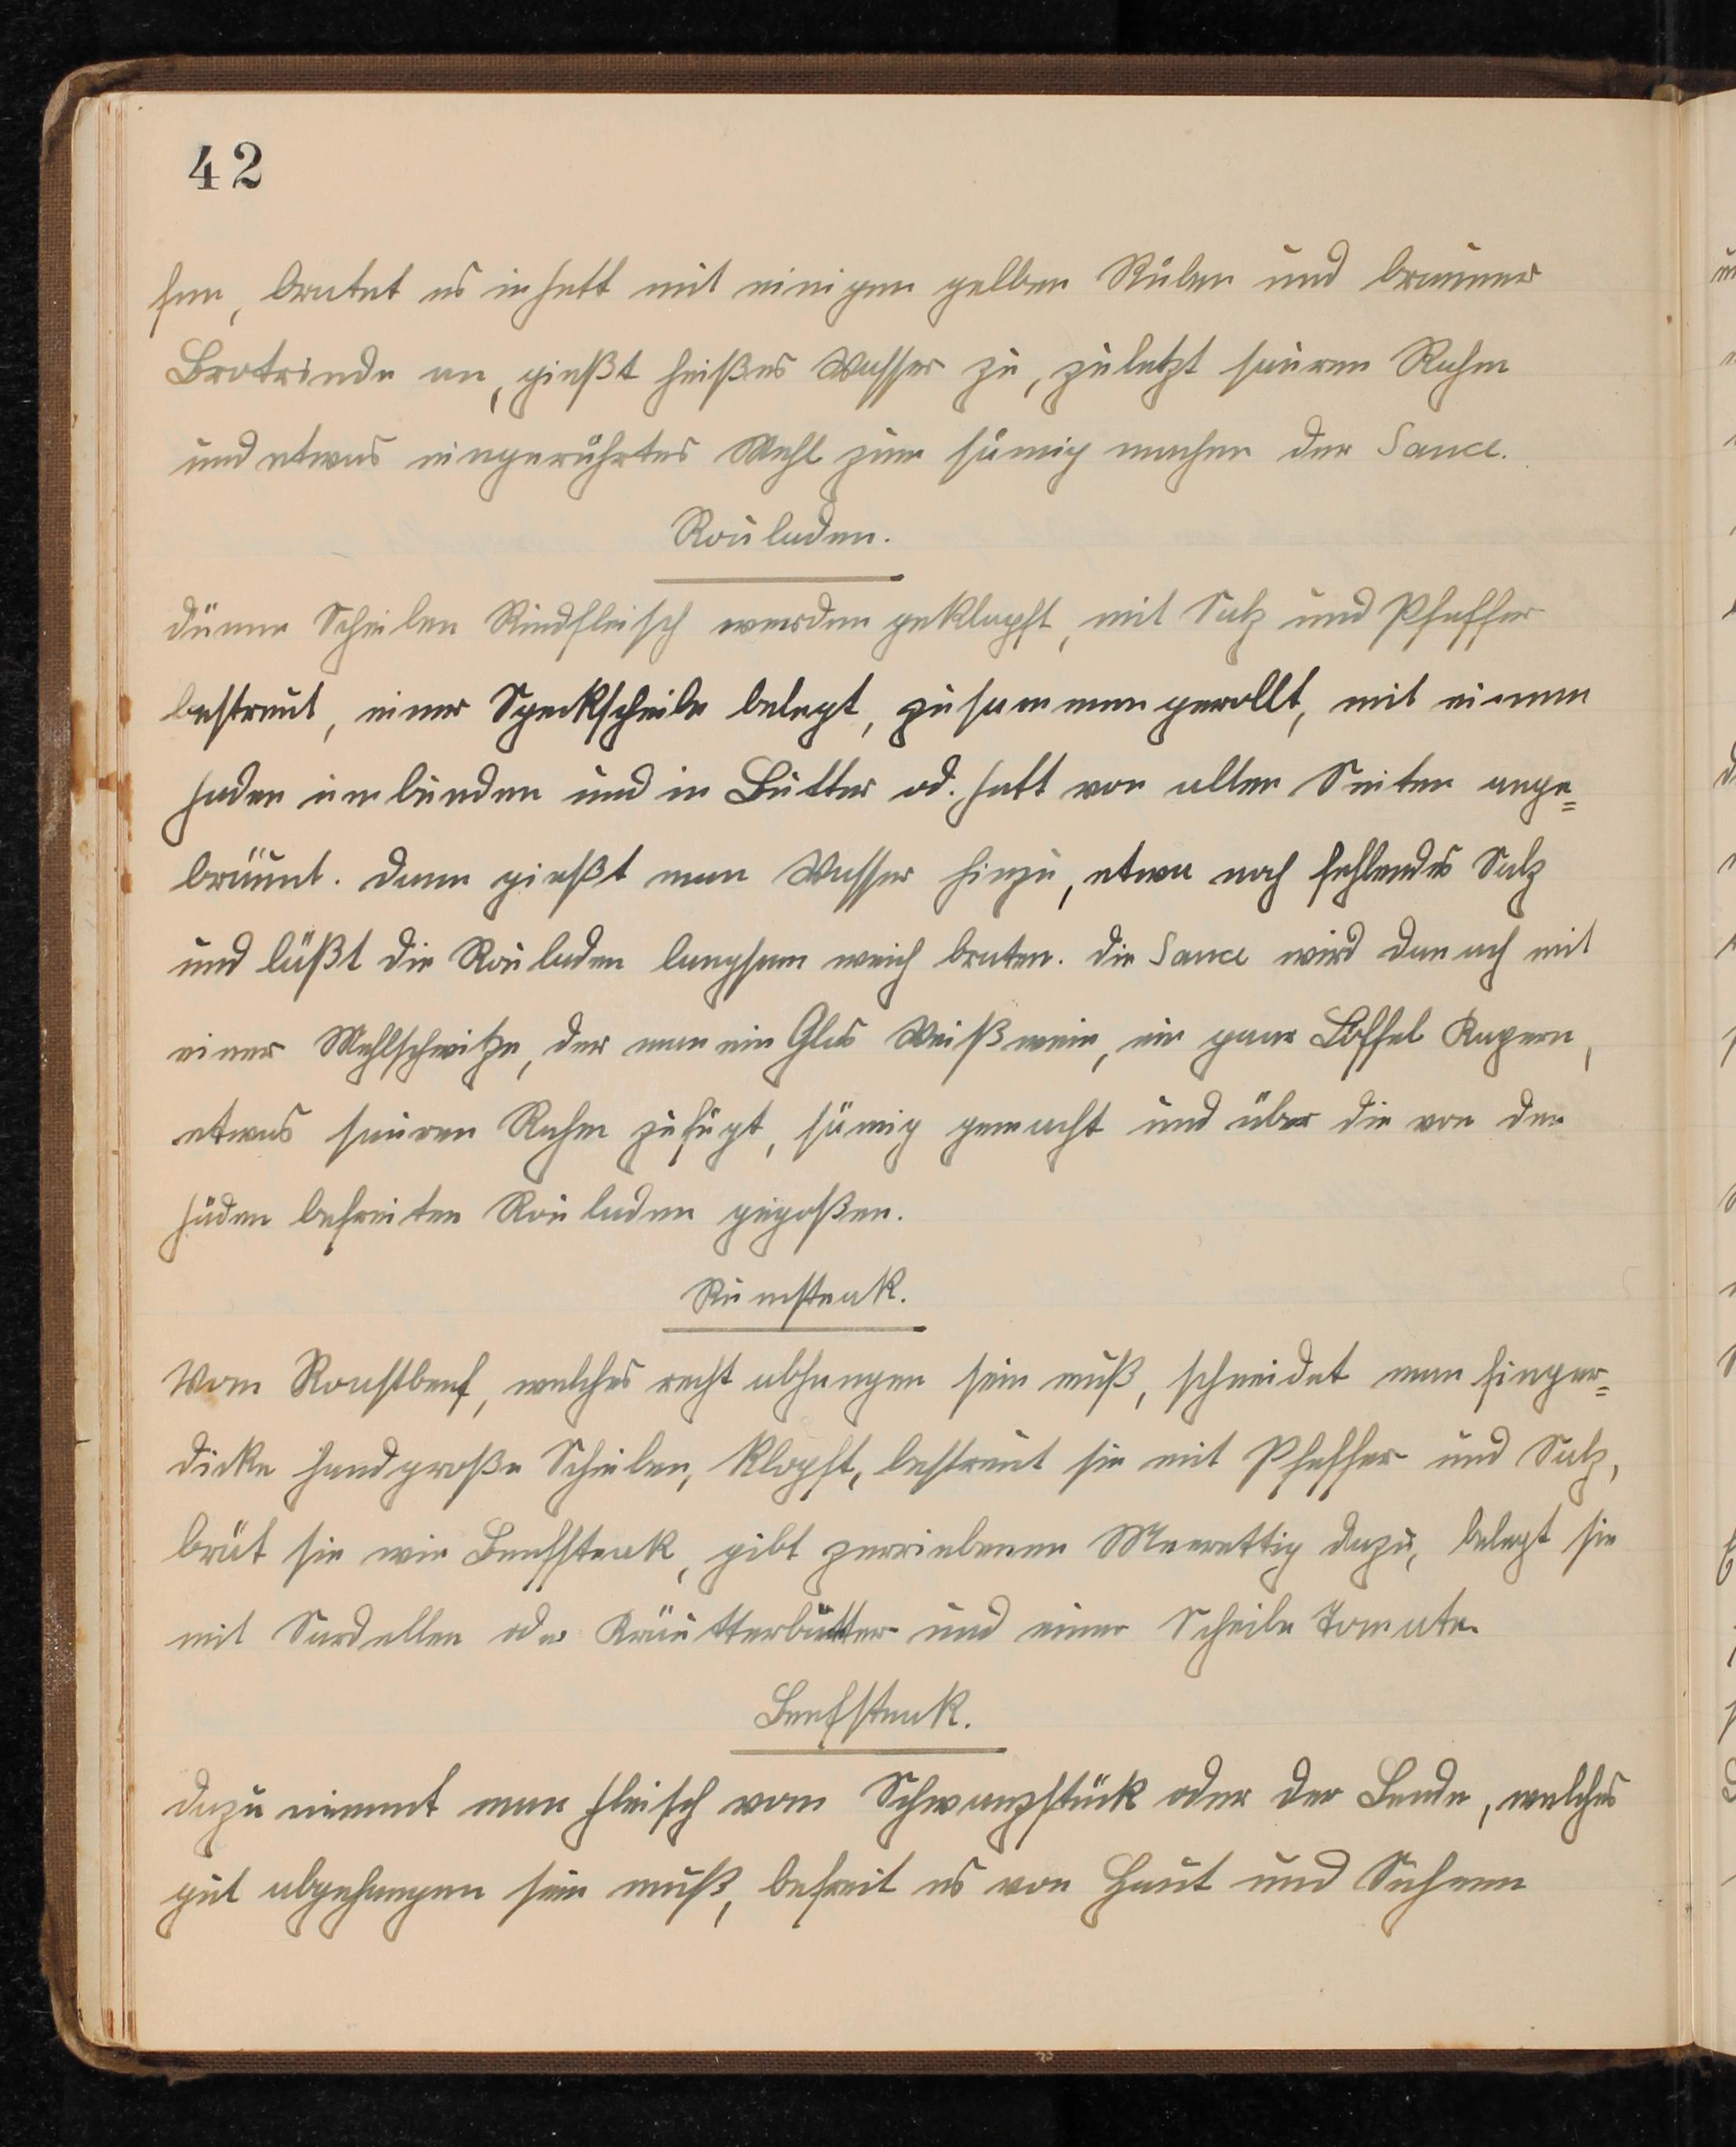 42
sen, bratet es in Fett mit einigen gelben Rüben und brauner
Brotrinde an, gießt heißes Wasser zu, zuletzt sauren Rahm
und etwas eingerührtes Mehl zum sämig machen der Sauce.
Rouladen.
Dünne Scheiben Rindfleisch werden geklopft, mit Salz und Pfeffer
bestreut, einer Speckscheibe belegt, zusammengerollt, mit einem
Faden umbunden und in Butter od. Fett von allen Seiten ange=
bräunt. Dann gießt man Wasser hinzu, etwa noch fehlendes Salz
und läßt die Rouladen langsam weich braten. Die Sauce wird danach mit
einer Mehlschwitze, der man ein Glas Weißwein, ein paar Löffel Kapern,
etwas sauren Rahm zufügt, sämig gemacht und über die von den
Fäden befreiten Rouladen gegoßen.
Rumsteak.
Vom Roastbeef, welches recht abhangen sein muß, schneidet man finger=
dicke handgroße Scheiben, klopft, bestreut sie mit Pfeffer und Salz,
brät sie wie Beefsteak, gibt zerriebenen Meerettig dazu, belegt sie
mit Sardellen oder Kräutterbutter und einer Scheibe Tomate.
Beefsteak.
Dazu nimmt man Fleisch vom Schwanzstück oder der Lende, welches
gut abgehangen sein muß, befreit es von Haut und Sehnen